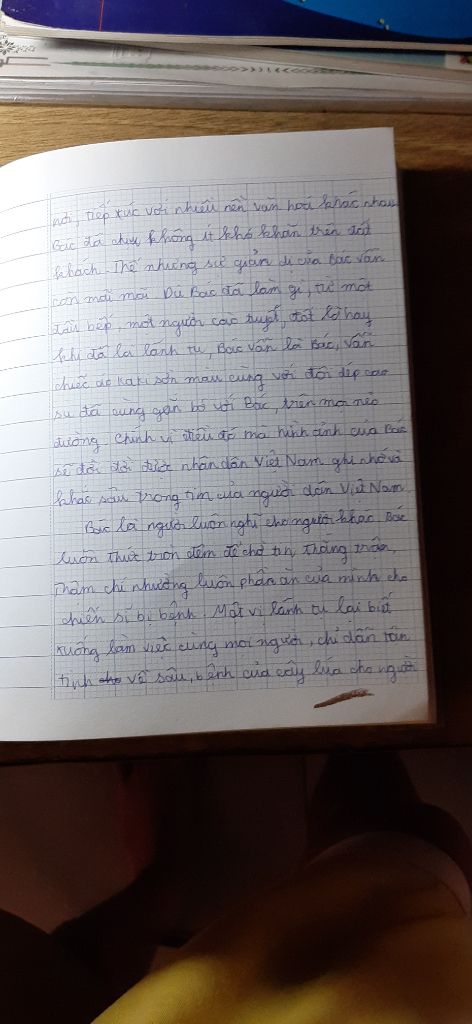 nơi, tiếp xúc với nhiều nền văn hoá khác nhau
Bác đã chịu không ít khó khăn trên đất
khách. Thế nhưng sự giản dị của Bác vẫn
còn mãi mãi. Dù Bác đã làm gì, từ một
đầu bếp, một người cào tuyết, đốt lò hay
khi đã là lãnh tụ, Bác vẫn là Bác, vẫn
chiếc áo kaki sờn màu cùng với đôi dép cao
su đã cùng gắn bó với Bác, trên mọi nẻo
đường. Chính vì điều đó mà hình ảnh của Bác
sẽ đời đời được nhân dân Việt Nam ghi nhớ và
khắc sâu trong tim của người dân Việt Nam.
Bác là người luôn nghĩ cho người khác. Bác
luôn thức trọn đêm để chờ tin thắng trận,
thậm chí nhường luôn phần ăn của mình cho
chiến sĩ bị bệnh. Một vị lãnh tụ lại biết
xuống làm việc cùng mọi người, chỉ dẫn tận
tình về sâu, bệnh của cây lúa cho người